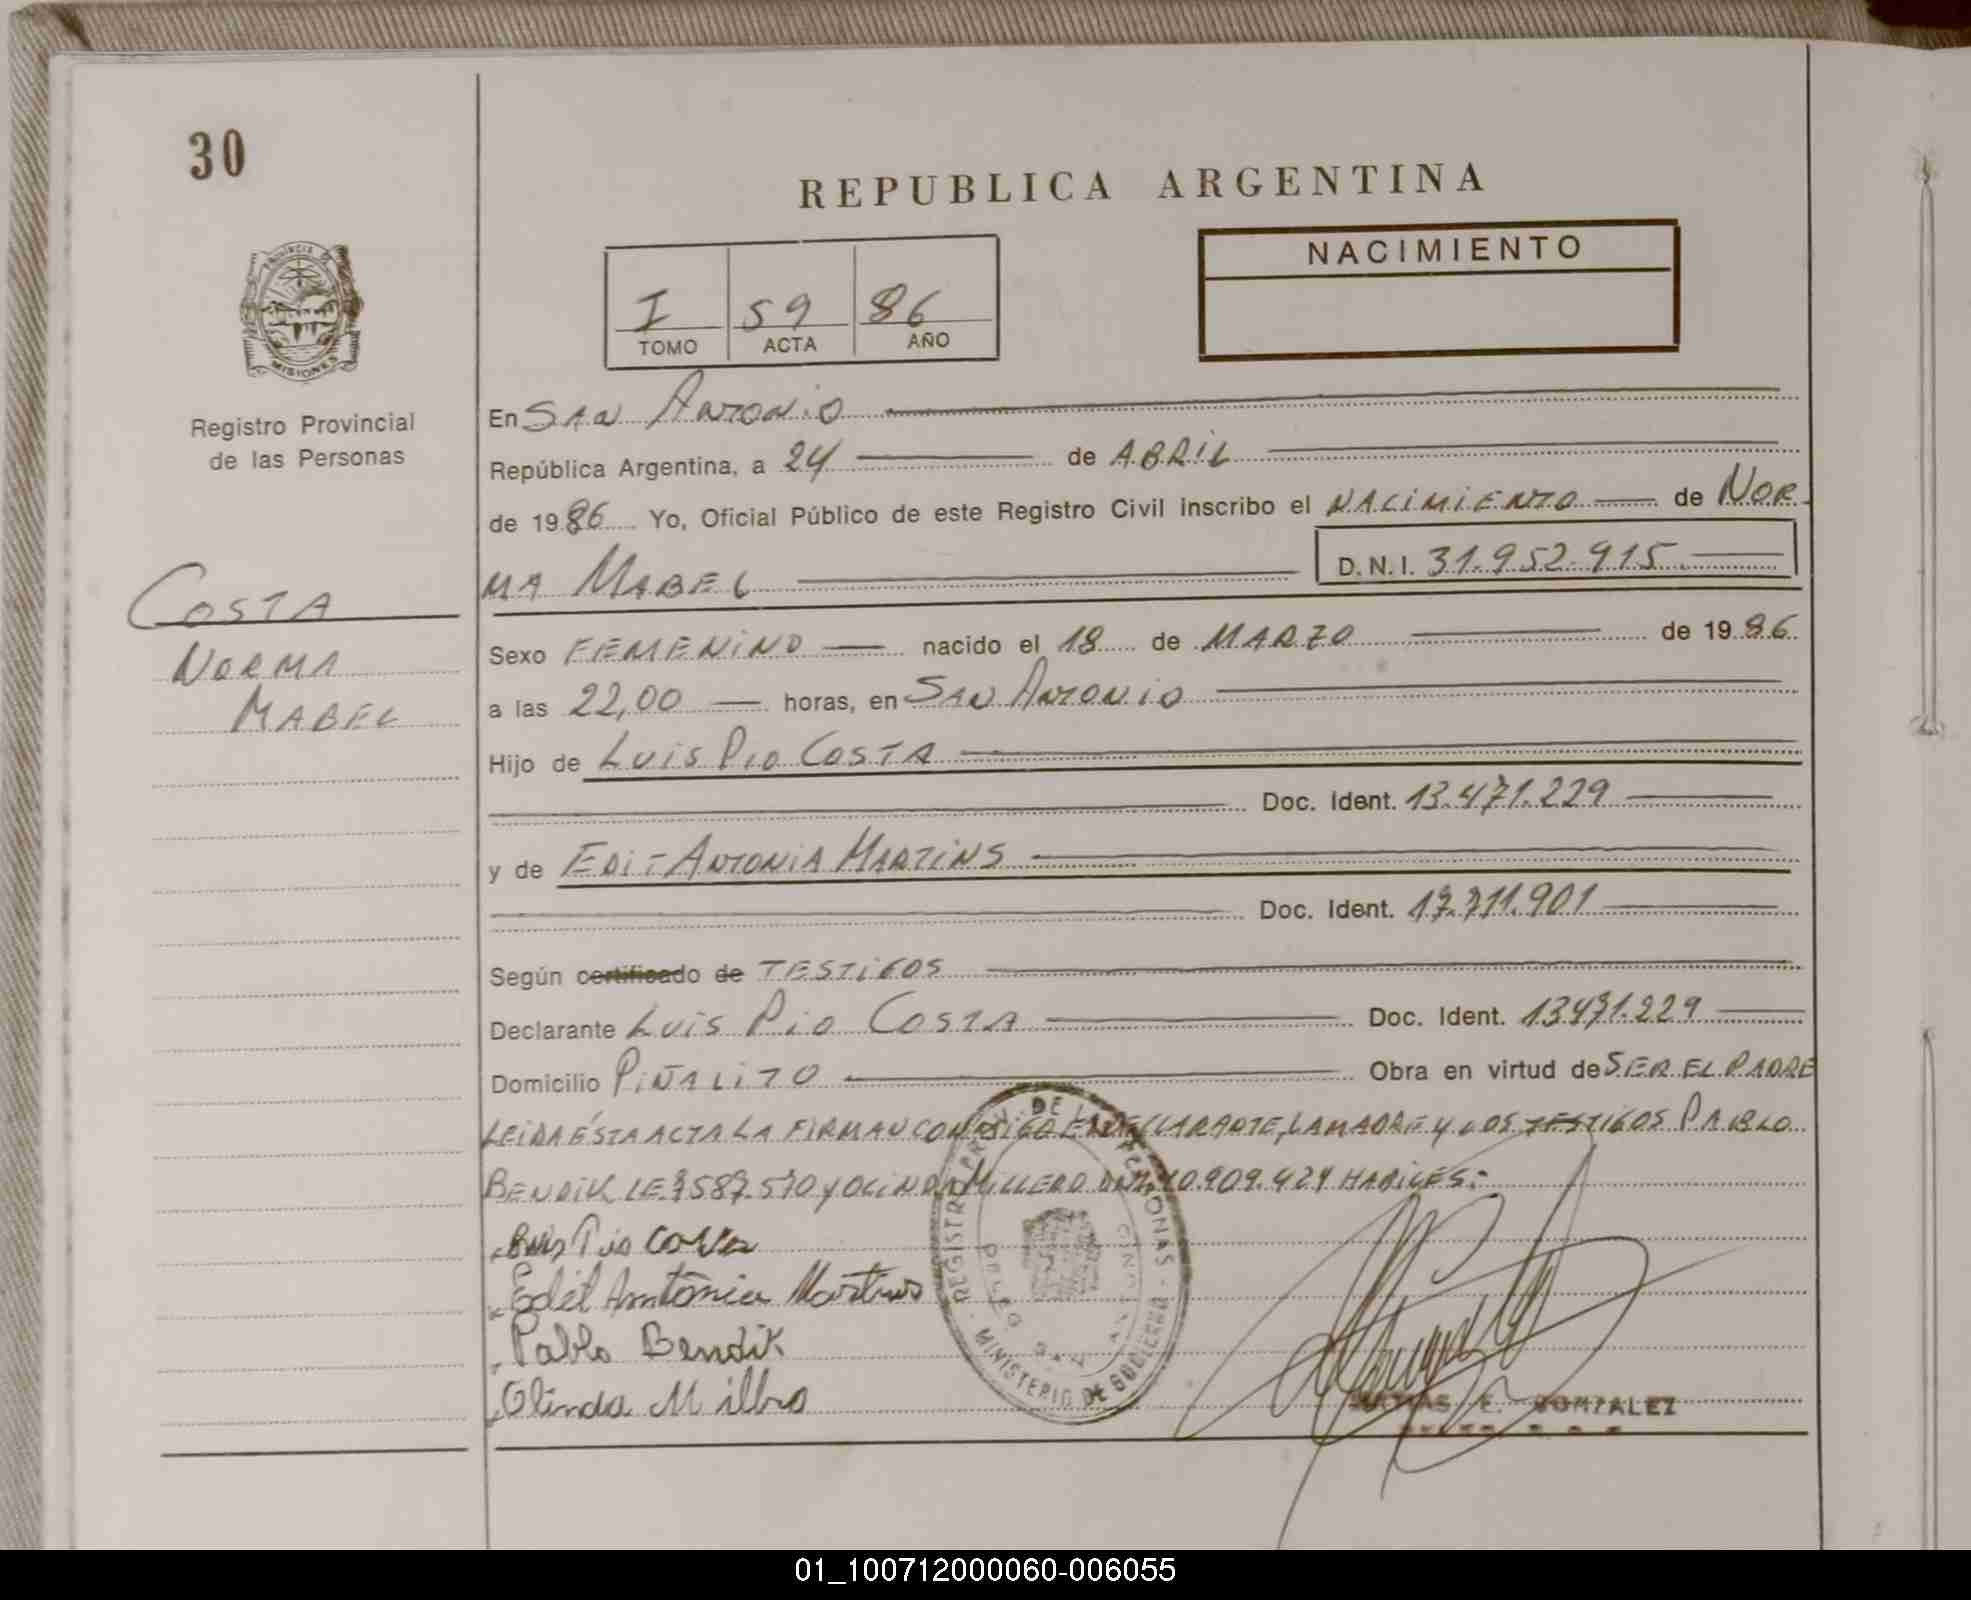 30
REPUBLICA ARGENTINA
NACIMIENTO
I 59 86
TOMO ACTA AÑO
PROVINCIA DE
MISIONES
Registro Provincial
de las Personas
COSTA
NORMA
MABEL
En SAN ANTONIO
República Argentina, a 24 de ABRIL
de 1986 Yo, Oficial Público de este Registro Civil inscribo el NACIMIENTO de NOR-
MA MABEL D.N.I. 31.952.915
Sexo FEMENINO nacido el 18 de MARZO de 1986
a las 22,00 horas, en SAN ANTONIO
Hijo de LUIS PIO COSTA
Doc. Ident. 13.471.229
y de EDIT ANTONIA MARTINS
Doc. Ident. 17.711.901
Según certificado de TESTIGOS
Declarante LUIS PIO COSTA Doc. Ident. 13471.229
Domicilio PIÑALITO Obra en virtud de SER EL PADRE
LEIDA ÉSTA ACTA LA FIRMAN CONMIGO EL DECLARANTE, LA MADRE Y LOS TESTIGOS PABLO
BENDIK LE 7587.570 Y OLINDA MILLERO DNI 10.909.424 HABILES:
Luis Pio Costa
Edit Antônia Martins
Pablo Bendik
Olinda
REGISTRO PROV. DE LAS PERSONAS
MINISTERIO DE GOBIERNO
SAN ANTONIO
E. GONZALEZ
01_100712000060-006055